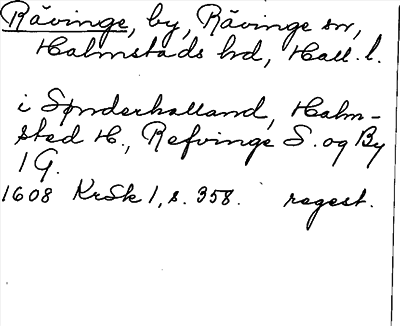 Rävinge, by, Rävinge sn,
Halmstads hd, Hall. l.
i Sønderhalland, Halm-
sted H., Refvinge S. og By
1 G.
1608 KrSk 1, s. 358. regest.